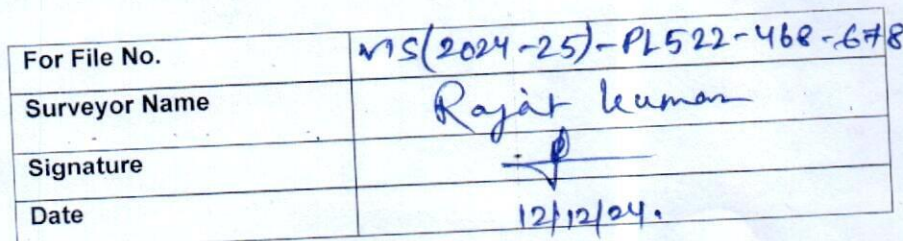 For File No. VIS(2024-25)-PL522-468-678
Surveyor Name Rajat Kumar
Signature
Date 12/12/24.